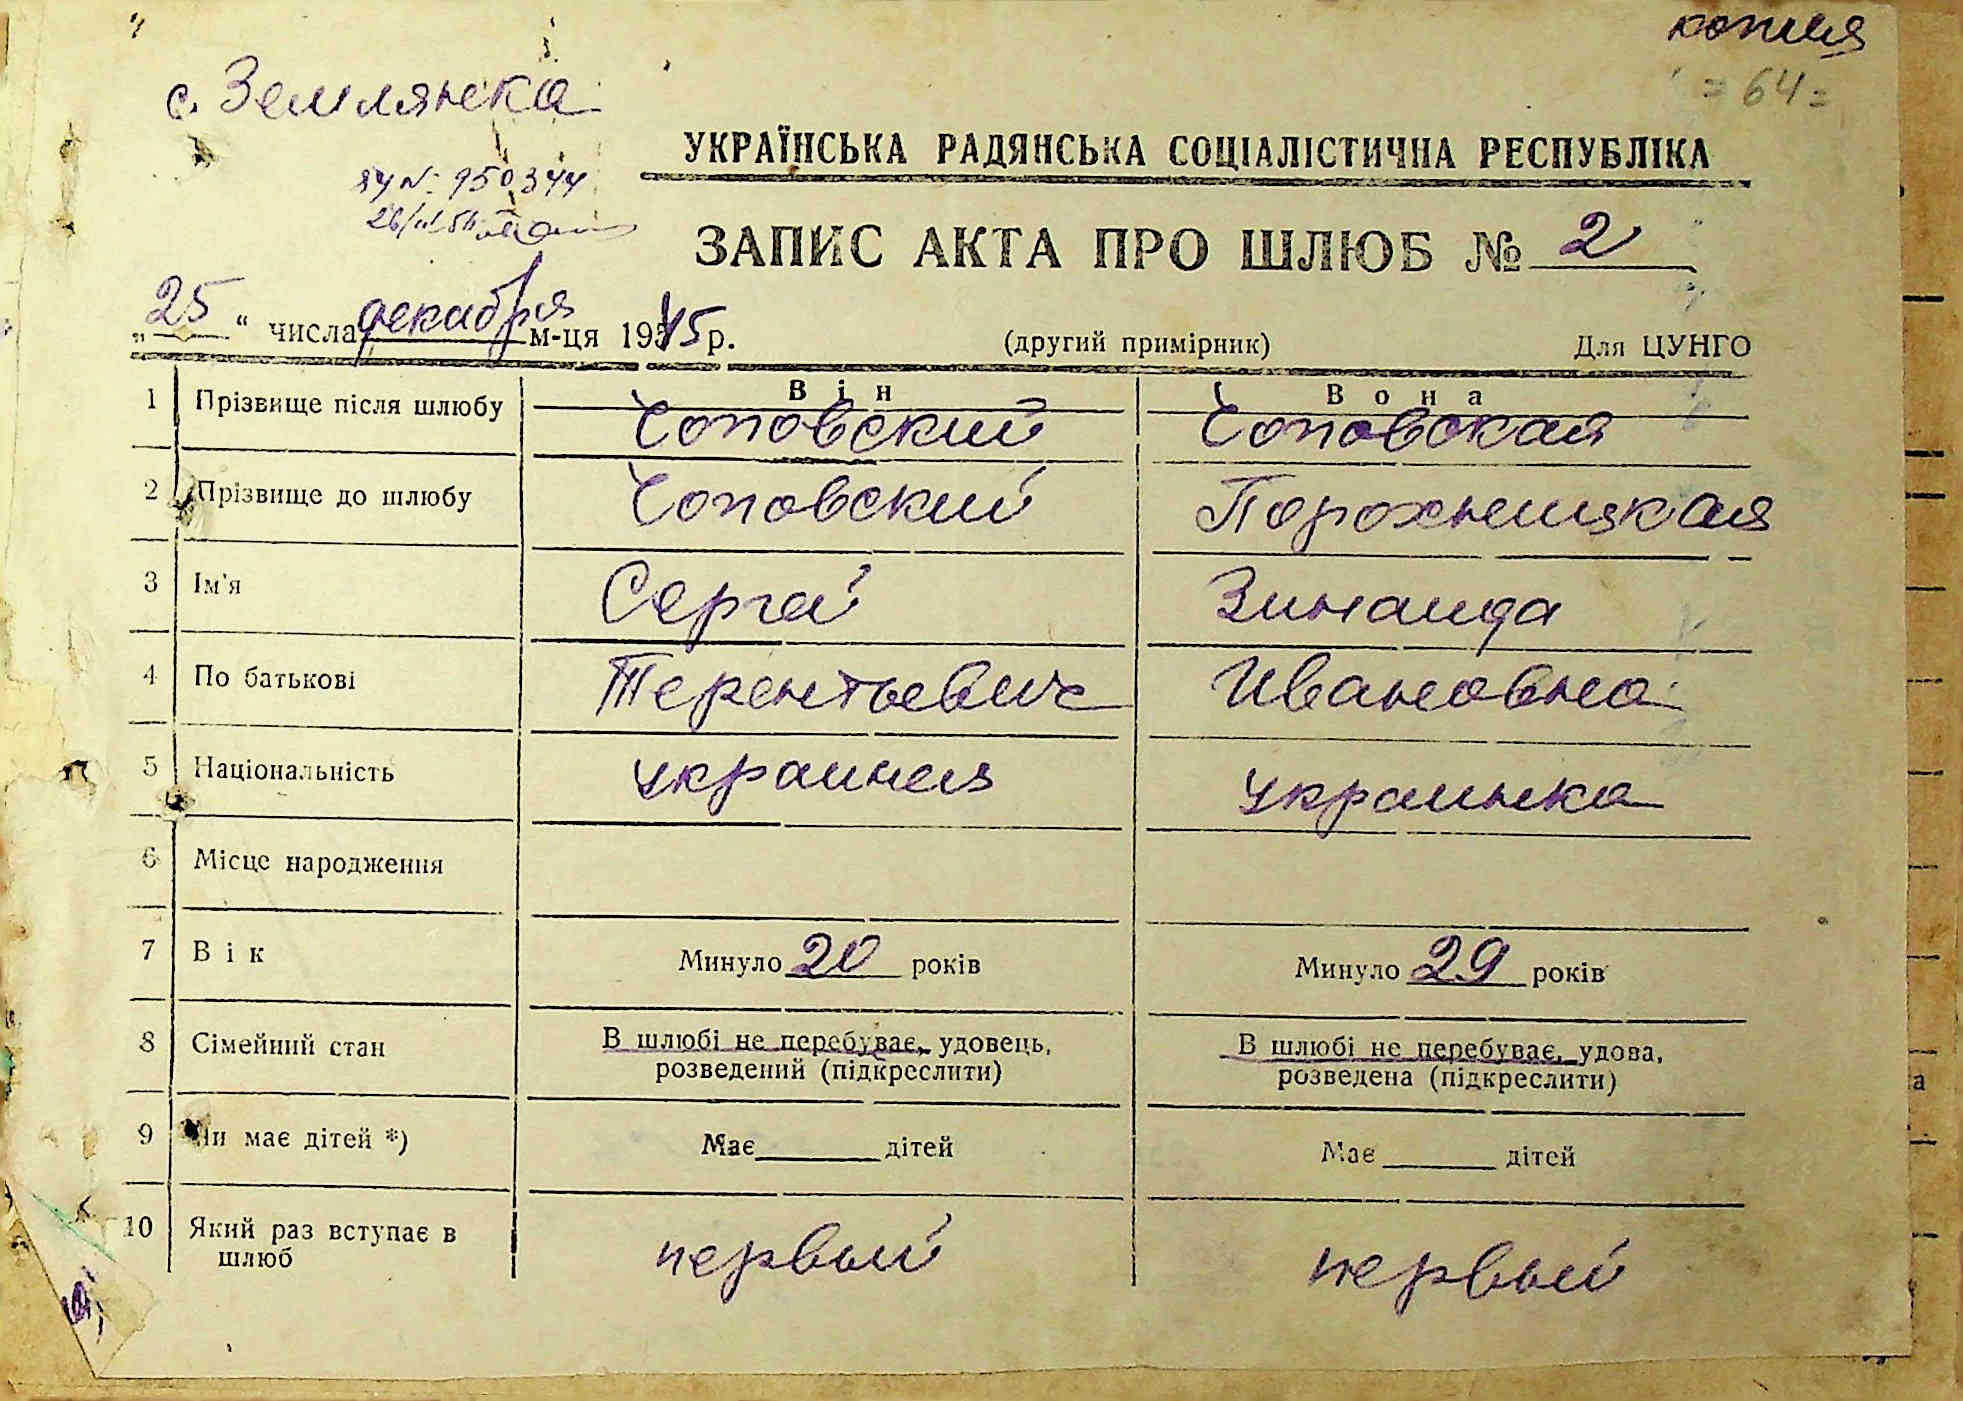 копия
= 64 =
с. Землянка
УКРАЇНСЬКА РАДЯНСЬКА СОЦІАЛІСТИЧНА РЕСПУБЛІКА
№ 950344
ЗАПИС АКТА ПРО ШЛЮБ № 2
„25“ числа декабря м-ця 1945 р. (другий примірник) Для ЦУНГО
Він Вона
1 Прізвище після шлюбу Чоповский Чоповская
2 Прізвище до шлюбу Чоповский Порохницкая
3 Ім'я Сергей Зинаида
4 По батькові Терентьевич Ивановна
5 Національність украинец украинка
6 Місце народження
7 Вік Минуло 20 років Минуло 29 років
8 Сімейний стан В шлюбі не перебуває, удовець, В шлюбі не перебуває, удова,
розведений (підкреслити) розведена (підкреслити)
9 Чи має дітей *) Має дітей Має дітей
10 Який раз вступає в
шлюб первый первый